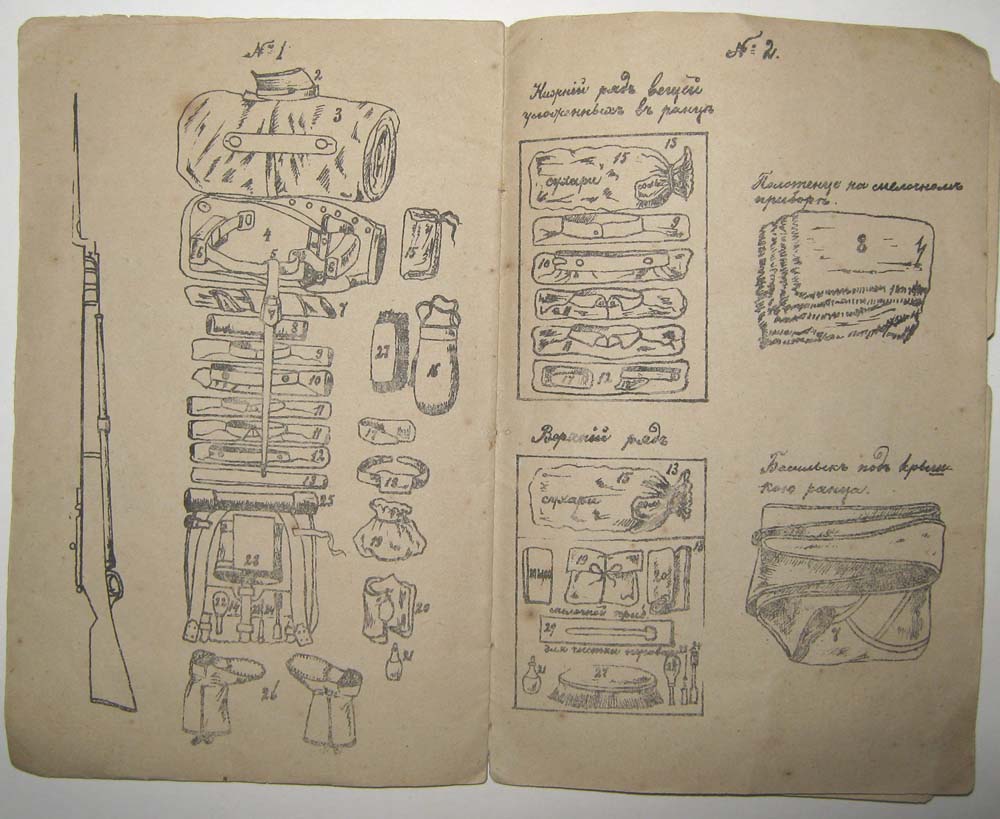 № 1
2
3
4
5
6
6
15
7
8
9
27
10
16
11
11
17
12
18
13
25
19
28
22
14
23
24
20
21
26
№ 2.
Нижній рядъ вещей
уложенныхъ въ ранцѣ
15
15
сухари
соль
9
10
11
17
12
Полотенце на мелочномъ
приборѣ.
8
Верхній рядъ
13
15
сухари
19
20
мелочной приб
29
для чистки
21
27
22
Башлыкъ подъ крыш-
кою ранца.
7